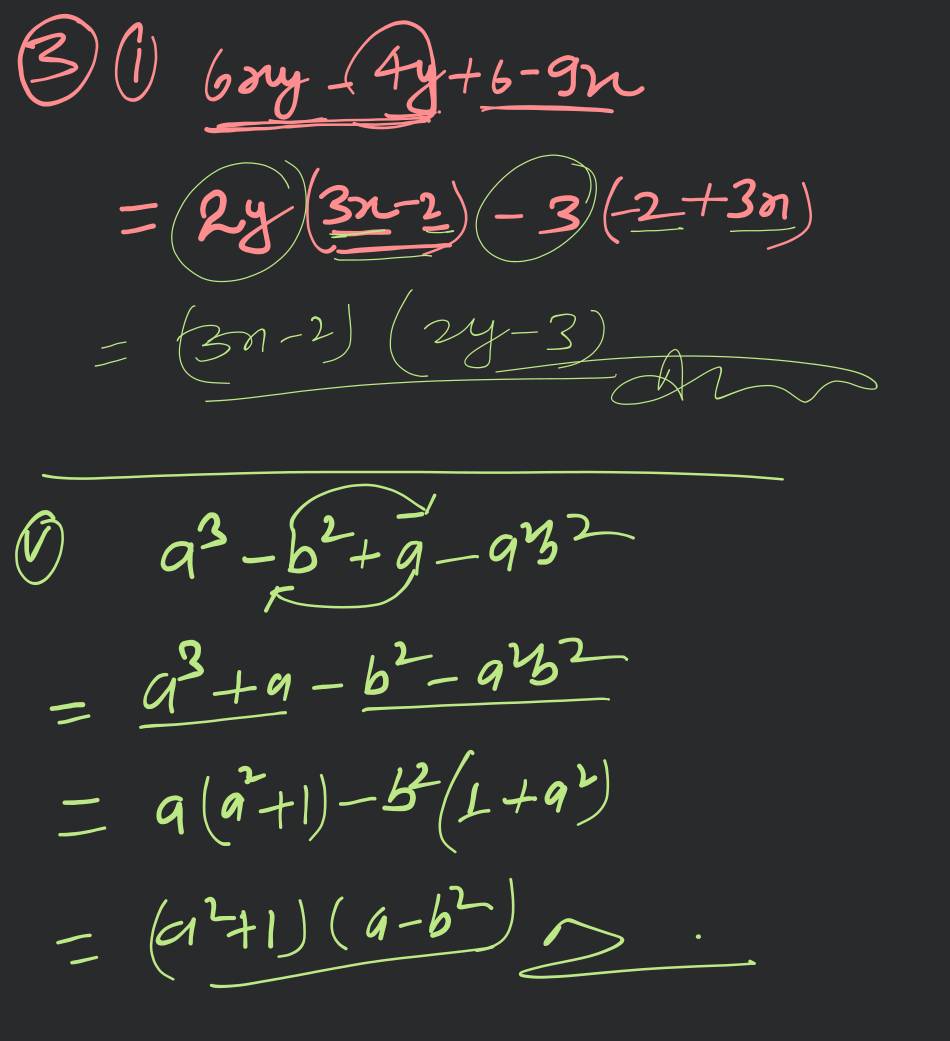 ③ ⓘ 6xy - 4y + 6 - 9x
= 2y (3x - 2) - 3 (-2 + 3x)
= (3x - 2) (2y - 3)
ⓥ a³ - b² + a - a²b²
= a³ + a - b² - a²b²
= a(a² + 1) - b²(1 + a²)
= (a² + 1) (a - b²)